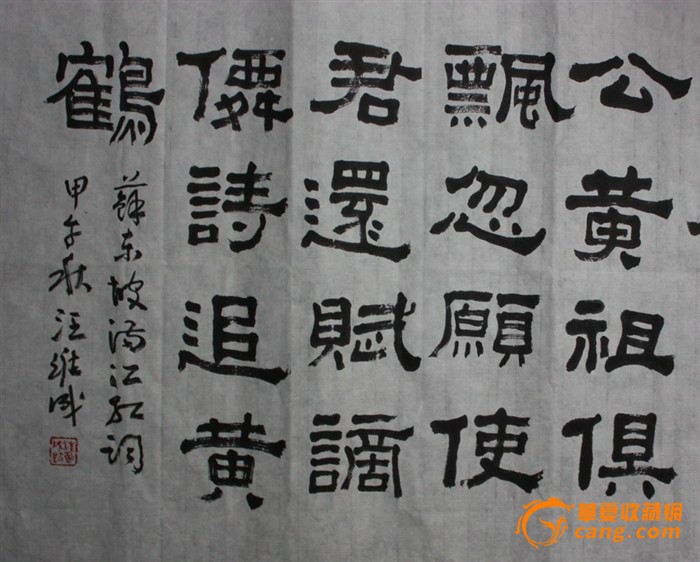 公黄祖俱
飘忽願使
君還賦謫
僊詩追黄
鶴
蘇东坡满江红词
甲午秋 汪維成
華夏收藏網
cang.com